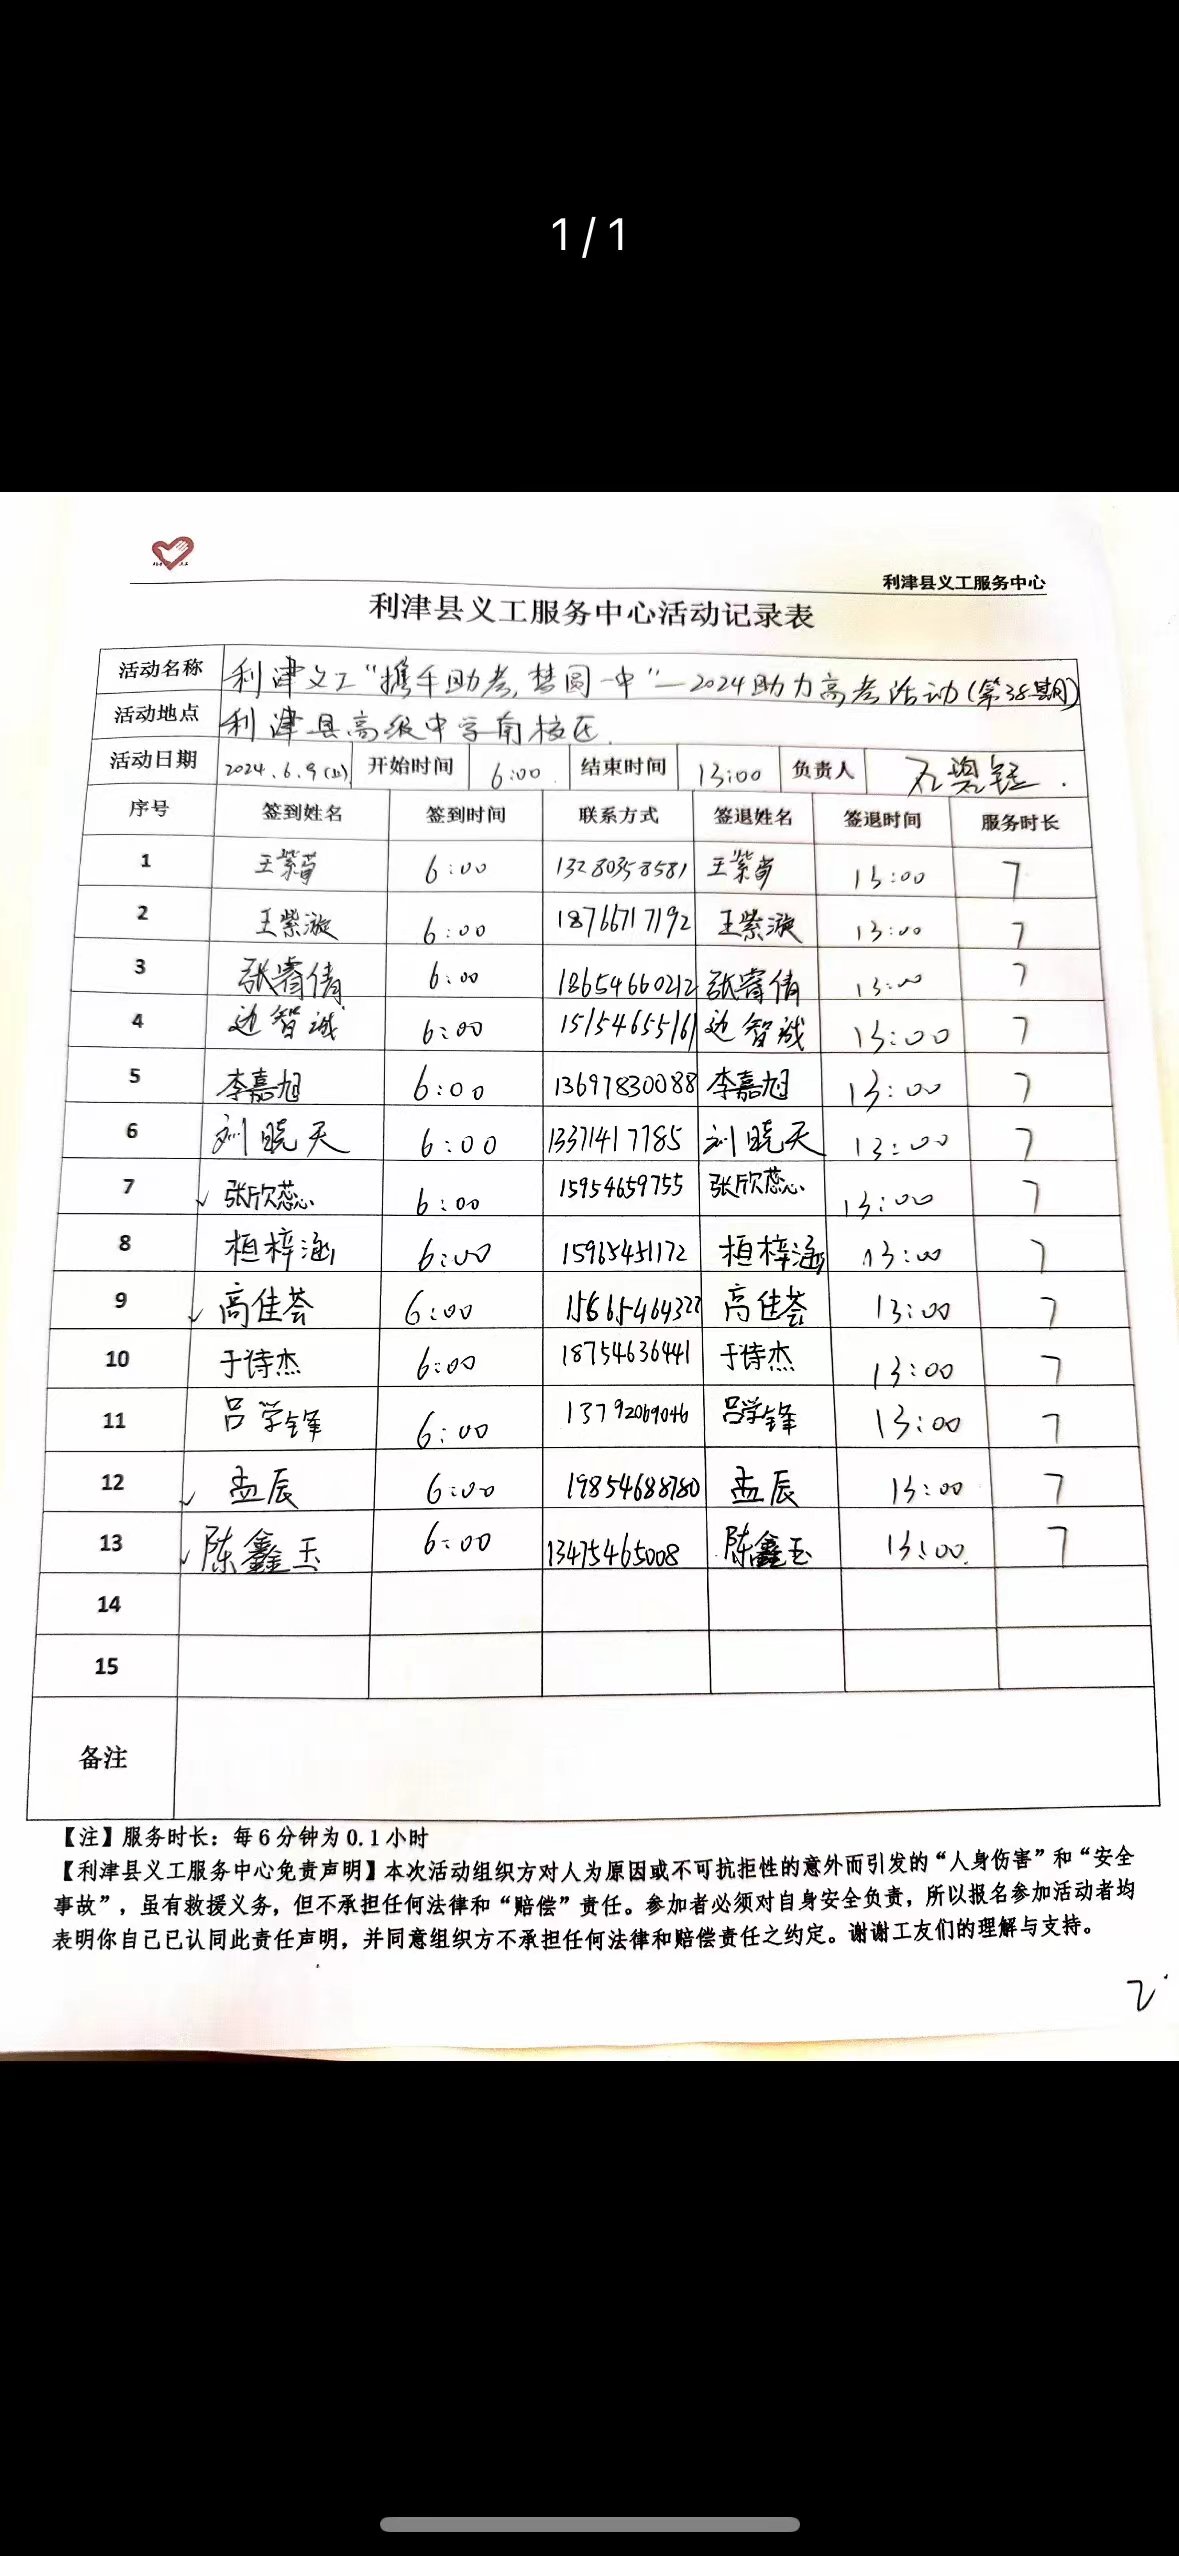 1/1
利津县义工服务中心
利津县义工服务中心活动记录表
活动名称 利津义工“携手助考,梦圆一中”—2024助力高考活动(第38期)
活动地点 利津县高级中学南校区
活动日期 2024.6.9(日) 开始时间 6:00 结束时间 13:00 负责人
序号 签到姓名 签到时间 联系方式 签退姓名 签退时间 服务时长
1 王紫菁 6:00 13280358581 王紫菁 13:00 7
2 王紫漩 6:00 18766717192 王紫漩 13:00 7
3 张睿倩 6:00 18654660212 张睿倩 13:00 7
4 边智诚 6:00 15154655161 边智诚 13:00 7
5 李嘉旭 6:00 13697830088 李嘉旭 13:00 7
6 刘晓天 6:00 13371417785 刘晓天 13:00 7
7 张欣蕊 6:00 15954659755 张欣蕊 13:00 7
8 桓梓涵 6:00 15965451172 桓梓涵 13:00 7
9 高佳荟 6:00 15665464322 高佳荟 13:00 7
10 于诗杰 6:00 18754636441 于诗杰 13:00 7
11 吕学锋 6:00 13792069046 吕学锋 13:00 7
12 孟辰 6:00 19854688780 孟辰 13:00 7
13 陈鑫玉 6:00 13475465008 陈鑫玉 13:00 7
14
15
备注
【注】服务时长：每6分钟为0.1小时
【利津县义工服务中心免责声明】本次活动组织方对人为原因或不可抗拒性的意外而引发的“人身伤害”和“安全
事故”，虽有救援义务，但不承担任何法律和“赔偿”责任。参加者必须对自身安全负责，所以报名参加活动者均
表明你自己已认同此责任声明，并同意组织方不承担任何法律和赔偿责任之约定。谢谢工友们的理解与支持。
2